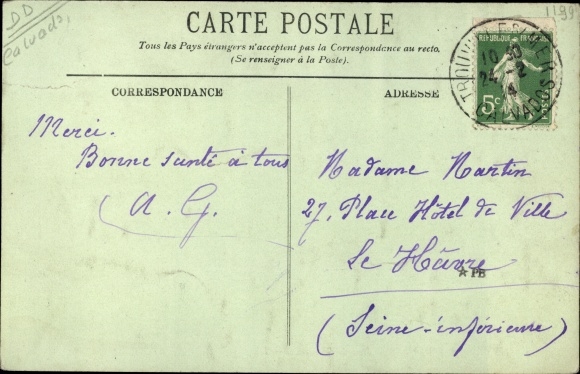 DD
Calvados
1199
CARTE POSTALE
Tous les Pays étrangers n'acceptent pas la Correspondance au recto.
(Se renseigner à la Poste).
CORRESPONDANCE
ADRESSE
REPUBLIQUE FRANÇAISE
5c
POSTES
10 30
24 - 2
CALVADOS
Merci.
Bonne santé à tous
A. G.
Madame Martin
27, Place Hôtel de Ville
Le Hâvre
PB
(Seine-inférieure)